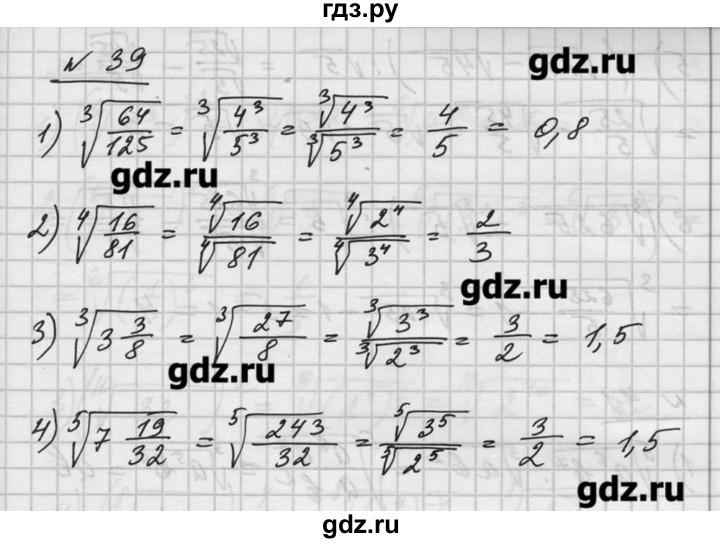 гдз.ру
№ 39
gdz.ru
1) ∛(64/125) = ∛(4³/5³) = ∛4³/∛5³ = 4/5 = 0,8
gdz.ru
2) ∜(16/81) = ∜16/∜81 = ∜2⁴/∜3⁴ = 2/3
gdz.ru
3) ∛(3 3/8) = ∛(27/8) = ∛3³/∛2³ = 3/2 = 1,5
gdz.ru
4) ⁵√(7 19/32) = ⁵√(243/32) = ⁵√3⁵/⁵√2⁵ = 3/2 = 1,5
gdz.ru
gdz.ru